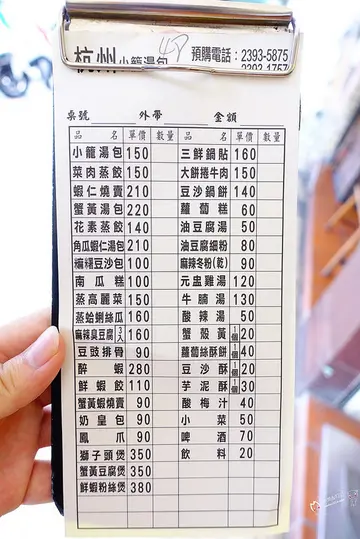 杭州小籠湯包 預購電話：2393-5875
2393-1757
桌號 外帶 金額
品名 單價 數量 品名 單價 數量
小籠湯包 150 三鮮鍋貼 160
菜肉蒸餃 150 大餅捲牛肉 150
蝦仁燒賣 210 豆沙鍋餅 140
蟹黃湯包 220 蘿蔔糕 60
花素蒸餃 140 油豆腐湯 50
角瓜蝦仁湯包 210 油豆腐細粉 80
糯糬豆沙包 100 麻辣冬粉(乾) 90
南瓜糕 100 元盅雞湯 120
蒸高麗菜 150 牛腩湯 130
蒸蛤蜊絲瓜 160 酸辣湯 50
麻辣臭豆腐 3入 160 蟹殼黃 1個 20
豆豉排骨 90 蘿蔔絲酥餅 1個 40
醉蝦 280 豆沙酥 1個 20
鮮蝦餃 110 芋泥酥 1個 30
蟹黃蝦燒賣 90 酸梅汁 40
奶皇包 90 小菜 50
鳳爪 90 啤酒 70
獅子頭煲 350 飲料 20
蟹黃豆腐煲 350
鮮蝦粉絲煲 380